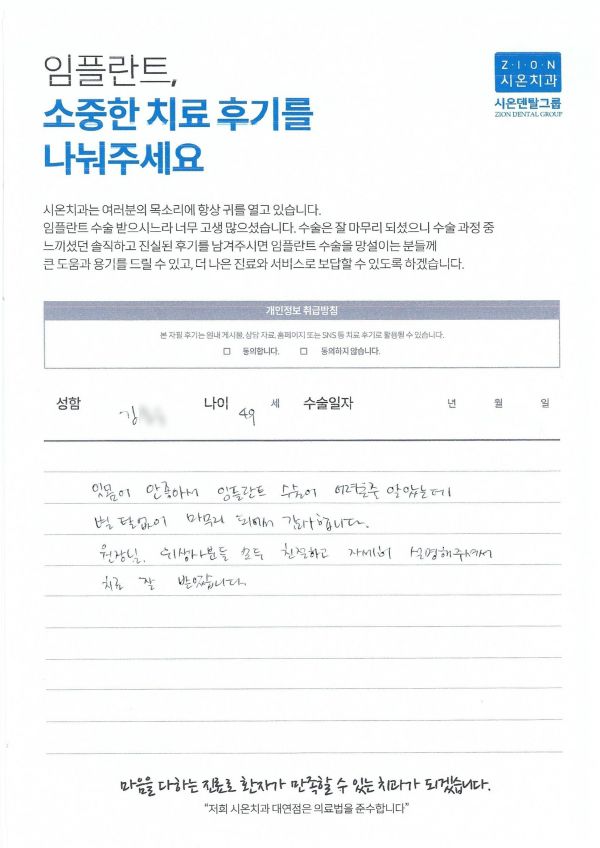 임플란트,
소중한 치료 후기를
나눠주세요
Z·I·O·N
시온치과
시온덴탈그룹
ZION DENTAL GROUP
시온치과는 여러분의 목소리에 항상 귀를 열고 있습니다.
임플란트 수술 받으시느라 너무 고생 많으셨습니다. 수술은 잘 마무리 되셨으니 수술 과정 중
느끼셨던 솔직하고 진실된 후기를 남겨주시면 임플란트 수술을 망설이는 분들께
큰 도움과 용기를 드릴 수 있고, 더 나은 진료와 서비스로 보답할 수 있도록 하겠습니다.
개인정보 취급방침
본 자필 후기는 원내 게시물, 상담 자료, 홈페이지 또는 SNS 등 치료 후기로 활용될 수 있습니다.
☐ 동의합니다. ☐ 동의하지 않습니다.
성함 김 나이 49 세 수술일자 년 월 일
잇몸이 안좋아서 임플란트 수술이 어려울줄 알았는데
별 탈없이 마무리 되어서 감사합니다.
원장님, 위생사분들 모두 친절하고 자세히 설명해주셔서
치료 잘 받았습니다.
마음을 다하는 진료로 환자가 만족할 수 있는 치과가 되겠습니다.
“저희 시온치과 대연점은 의료법을 준수합니다”